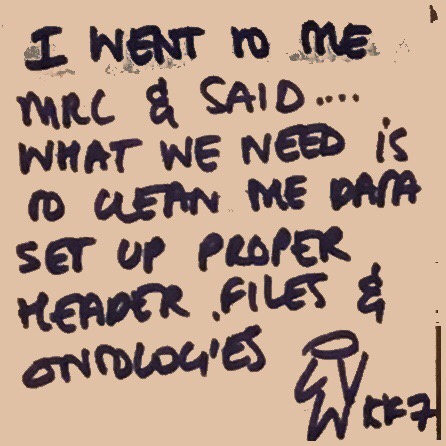 I WENT TO THE
MRC & SAID....
WHAT WE NEED IS
TO CLEAN THE DATA
SET UP PROPER
HEADER FILES &
ONTOLOGIES
KK7